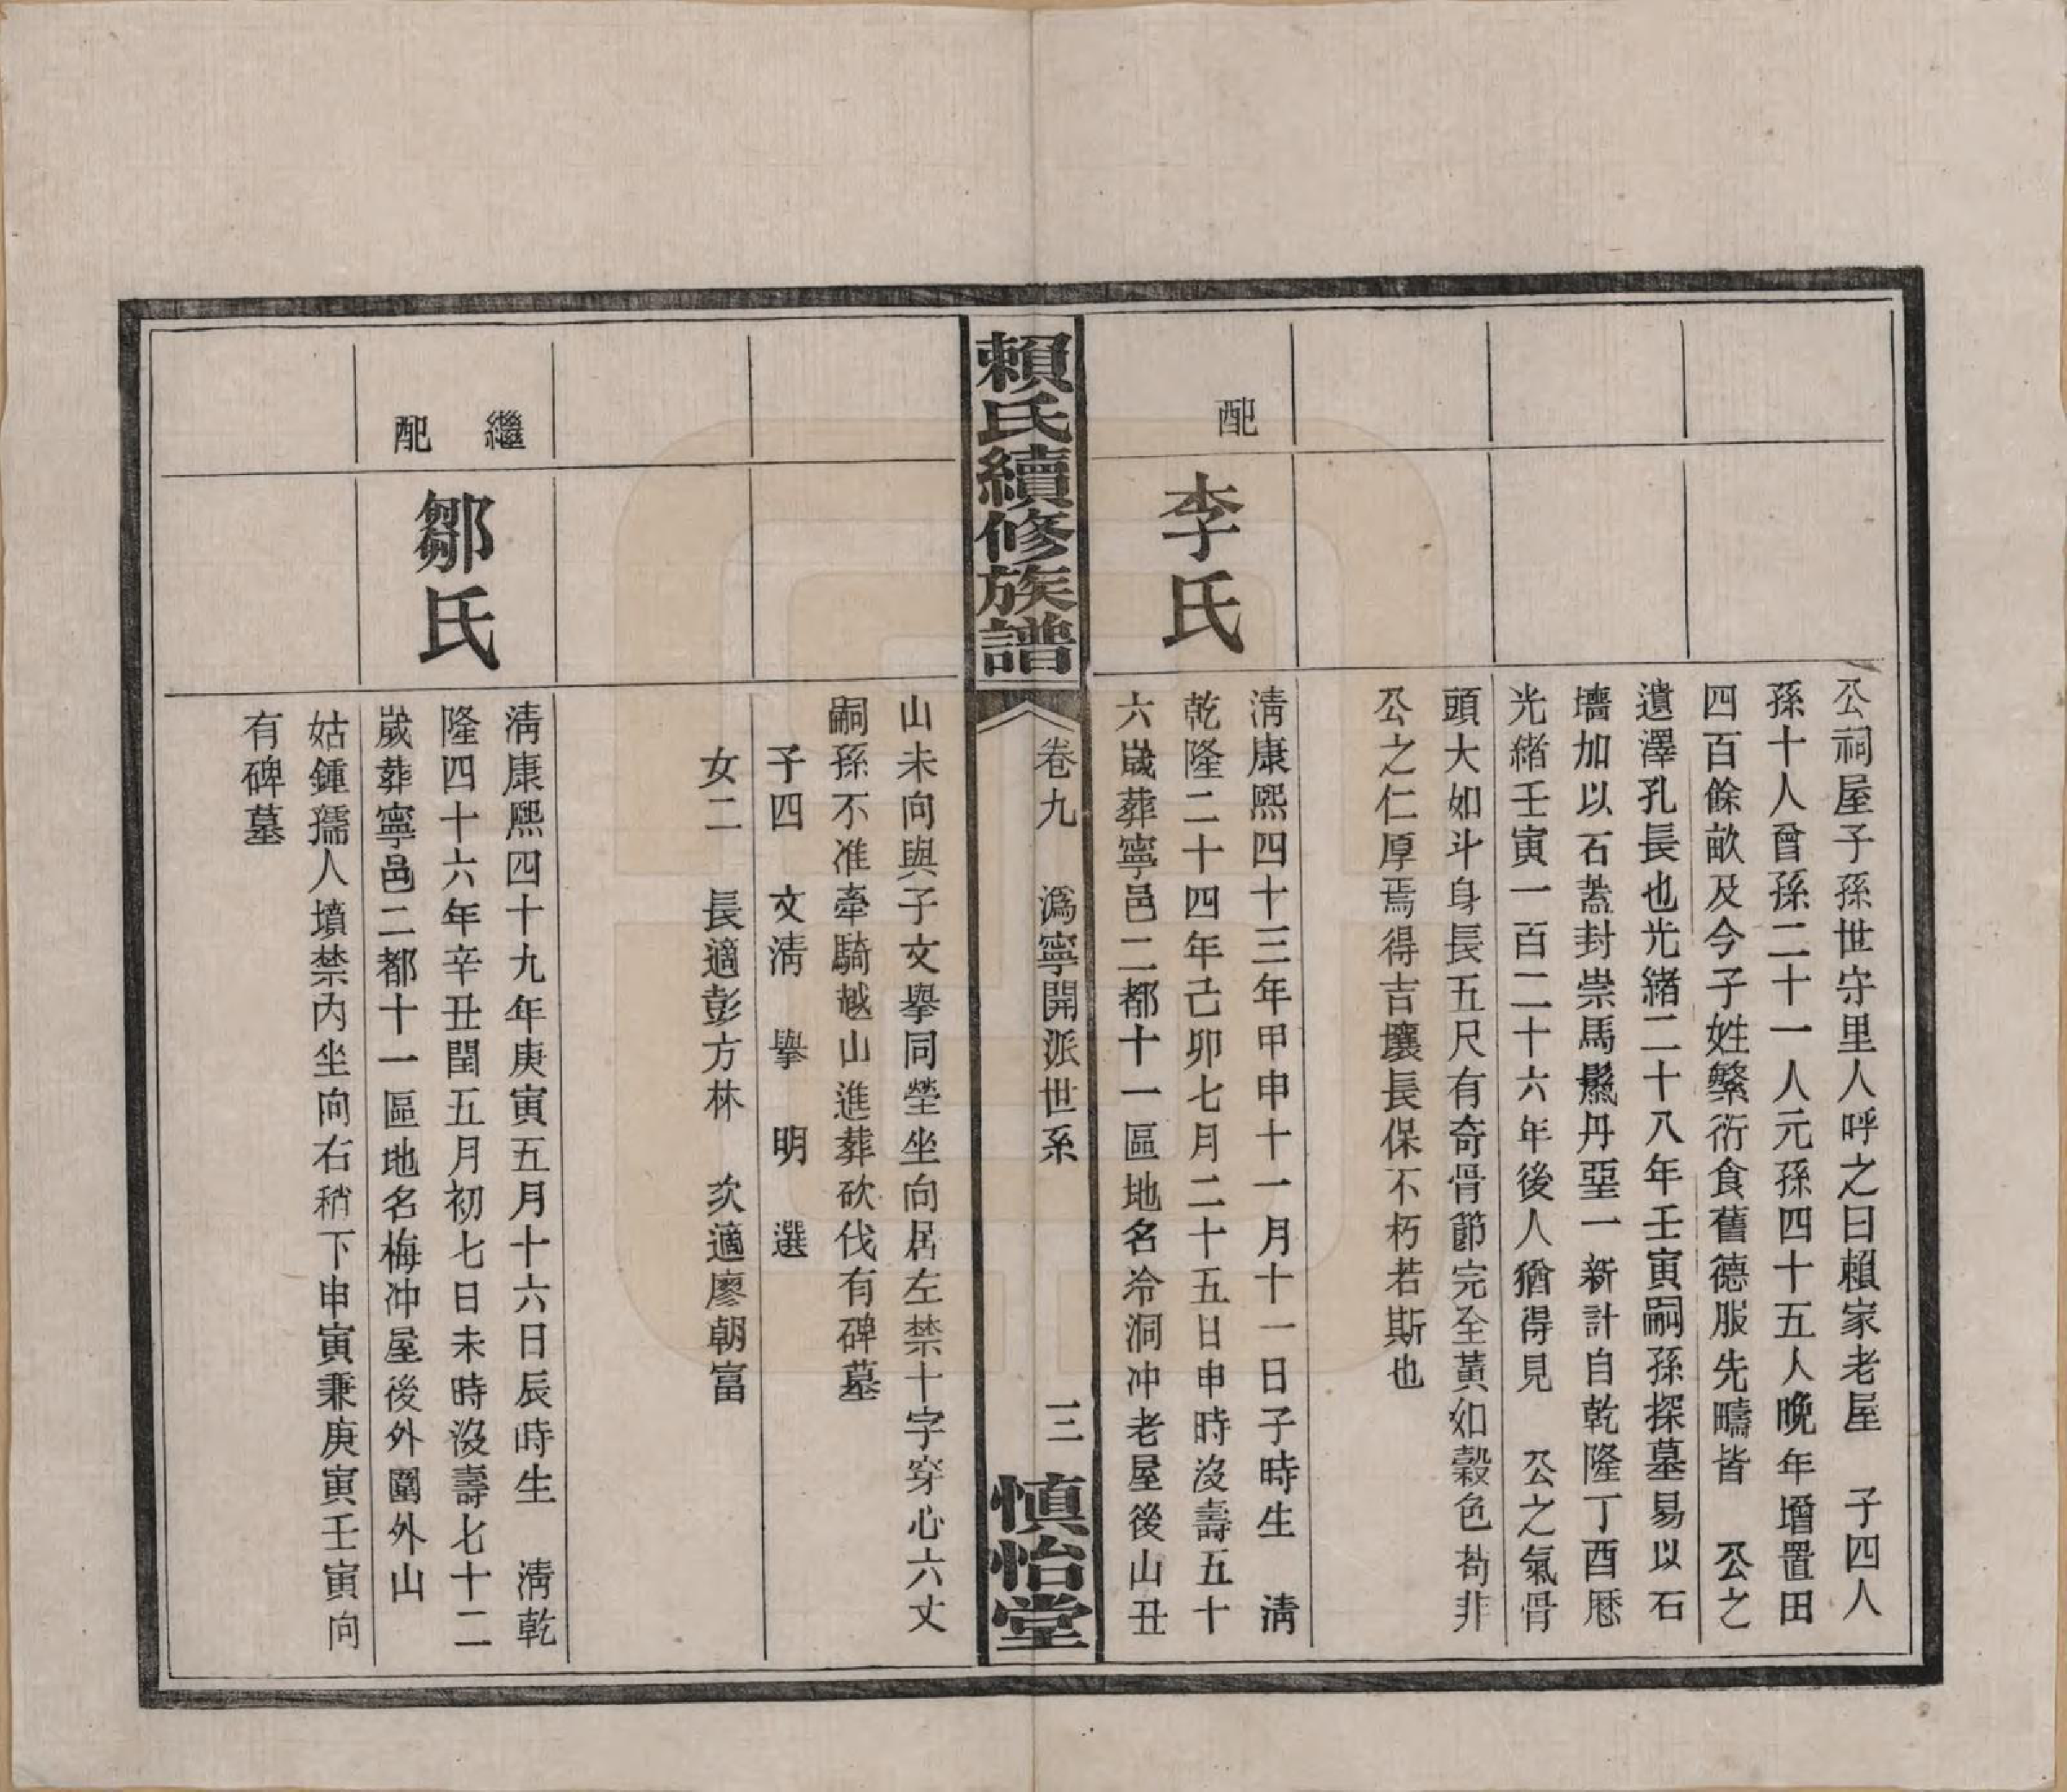 公祠屋子孫世守里人呼之曰賴家老屋　子四人
孫十人曾孫二十一人元孫四十五人晚年增置田
四百餘畝及今子姓繁衍食舊德服先疇皆　公之
遺澤孔長也光緒二十八年壬寅嗣孫探墓易以石
墻加以石蓋封崇馬鬣丹堊一新計自乾隆丁酉歷
光緒壬寅一百二十六年後人猶得見　公之氣骨
頭大如斗身長五尺有奇骨節完至黃如穀色苟非
公之仁厚焉得吉壤長保不朽若斯也
配
李氏
清康熙四十三年甲申十一月十一日子時生　清
乾隆二十四年己卯七月二十五日申時沒壽五十
六歲葬寧邑二都十一區地名冷洞冲老屋後山丑
賴氏續修族譜
卷九　溈寧開派世系
三
慎怡堂
山未向與子文擧同塋坐向居左禁十字穿心六丈
嗣孫不准牽騎越山進葬砍伐有碑墓
子四　文清　擧　明　選
女二　長適彭方林　次適廖朝富
繼
配
鄒氏
清康熙四十九年庚寅五月十六日辰時生　清乾
隆四十六年辛丑閏五月初七日未時沒壽七十二
歲葬寧邑二都十一區地名梅冲屋後外圍外山
姑鍾孺人墳禁內坐向右稍下申寅兼庚寅壬寅向
有碑墓